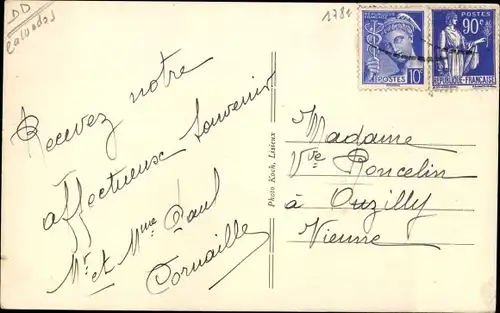 DD
Calvados
1781
Recevez notre
affectueux Souvenir
Mr et Mme Paul
Cornaille
Photo Koch, Lisieux
REPUBLIQUE FRANÇAISE
POSTES 10c
POSTES
90c
REPUBLIQUE FRANÇAISE
Madame
Vve Poncelin
à Ouzilly
Vienne